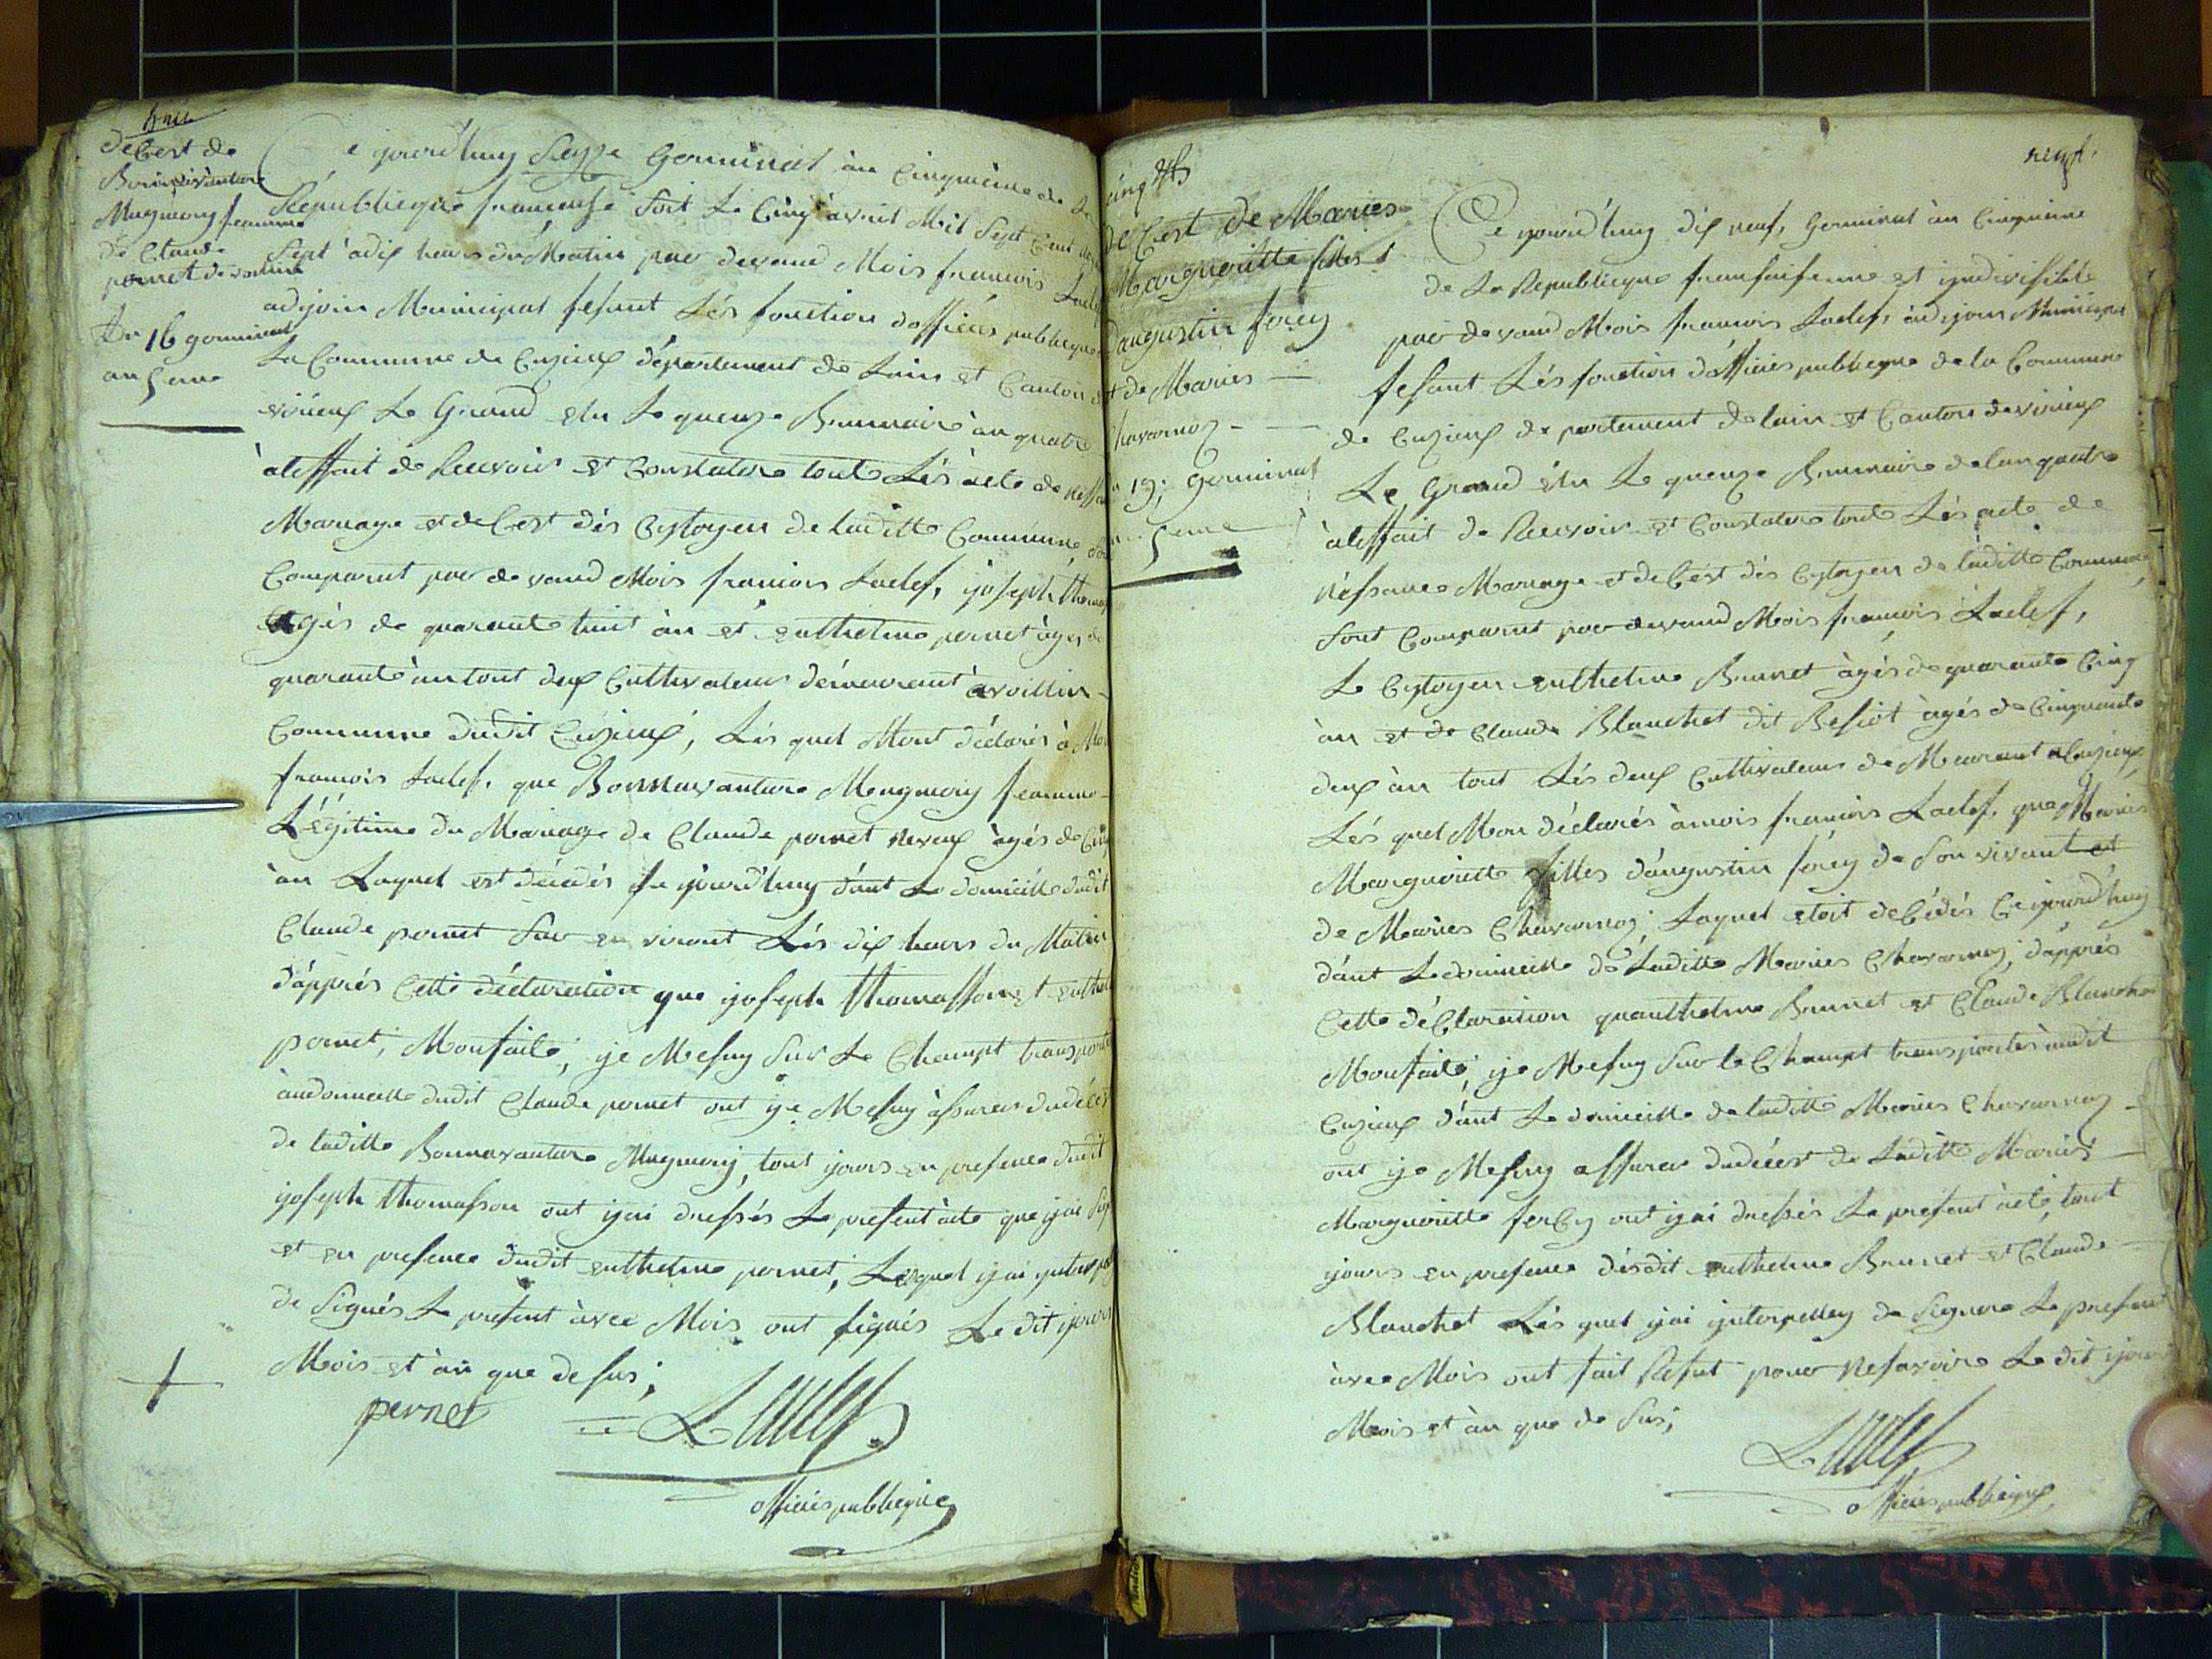 deCest de
Bonnavanture
Mugniery feamme
de Claude
pernet de voillin
Du 16 germinal
an 5eme
Ce ijourd'huy Seyze Germinal àn Cinquième de La
Républicque francaise soit Le Cinq àvril Mil Sept Cent
Sept à dix heurs du Matin par devand Mois francois Laclef
adjoin Municipal fesant Lés fonction dofficiés publicque
La Commune de Cuzieux département de Lain et Canton
virieux Le Grand élu Le quenze Brumaire àn quatre
àleffait de Recevoir et Constatere toute Lés àcte de
Mariage et deCest dés Cytoyen de laditte Commune
Comparut par devand Mois francois Laclef, ijoseph
àgés de quarante huit àn et enthelme pernet àgés de
quarante àn tout deux Cultivateur démeurant àvoillin
Commune dudit Cuzieux, Lés quel Mont déclarés à
francois Laclef, que Bonnavanture Mugniery feamme
Légitime du Mariage de Claude pernet neveux àgés de
àn Laquel est décédés ce ijourd'huy dant Le domicille dudit
Claude pernet Sur en viront Lés dix heurs du Matin
d'apprés Cette déclaration que ijoseph thomasson et
pernet, Monfaite, ije Mesuy Sur Le Champt transporté
àudomicille dudit Claude pernet out ije Mesuy àssurer dudécés
de laditte Bonnavanture Mugniery, tout ijours en presence dudit
ijoseph thomasson out ijai dressés Le present àcte que ijai
et en presence dudit enthelme pernet, Lesquel ijai
de Signés Le present àvec Mois ont signés Le dit ijours
Mois et àn que desus;
pernet
Laclef
officiés publicque
cinq
deCest de Maries
Margueritte filles
d'augustin forcy
et de Maries
Chavarnoz
19; Germinal
5eme
Ce ijourd'huy dix neuf, Germinal àn Cinquième
de La Republicque et indivisible
par devand Mois francois Laclef, àdjoin Municipal
fesant Lés fonction dofficiés publicque de la Commune
de Cuzieux departement de lain et Canton de virieux
Le Grand élu Le quenze Brumaire de lan quatre
àleffait de Recevoir et Constatere toute Lés àcte de
néssance Mariage et deCest dés Cytoyen de laditte Commune
Sont Comparut par devand Mois francois Laclef,
Le Cytoyen enthelme Brunet àgés de quarante Cinq
àn et de Claude Blanchet dit Besiot àgés de Cinquante
deux àn tout Lés deux Cultivateur deMeurant àCuzieux
Lés quel Mon déclarés àmois francois Laclef, que Maries
Margueritte filles d'augustin forcy de Son vivant et
de Maries Chavarnoz; Laquel etoit deCédés Ce ijourd'huy
dant Le domicille de Laditte Maries Chavarnoz; d'apprés
Cette déClaration quenthelme Brunet et Claude Blanchet
Monfaite, ije Mesuy Sur le Champt transportés àudit
Cuzieux dant Le domicille de laditte Maries Chavarnoz
out ije Mesuy assurer dudécés de Laditte Maries
Margueritte forCy out ijai dressés Le présent àcte, tout
ijours en presence désdit enthelme Brunet et Claude
Blanchet Lés quel ijai ijnterpelley de Signere Le present
àvec Mois ont fait Refut pour Nesavoire Le dit ijours
Mois et àn que de Sus;
Laclef
officiés publicque